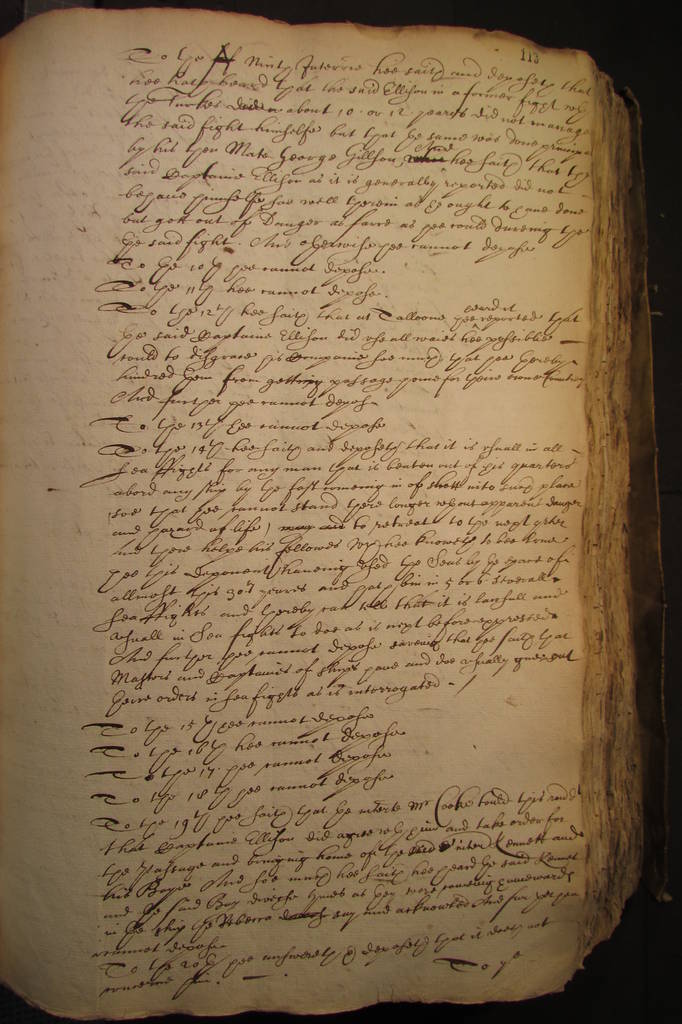 113
To the Ninth Interrie hee saith and deposeth that
hee hath heard that the said Ellison in a former fight wth
the Turkes about 10 or 12 yeares did not manage
the said fight himselfe but that the same was done principa
by his then Mate George Gillson, And hee saith that the
said Captaine Ellison as it is generally reported did not
behave himselfe soe well therein as he ought to have done
but gott out of Danger as farre as hee could dureing the
the said fight. And otherwise hee cannot depose
To the 10th hee cannot depose.
To the 11th hee cannot depose.
To the 12th hee saith that at heard it
hee reported that
the said Captaine Ellison did use all waies hee possible
could to disgrace his Companie soe much that hee thereby
hindred them from getting passage home for their owne Countrey
And further hee cannot depose
To the 13th hee cannot depose
To the 14th hee saith and deposeth that it is usuall in all
sea ffights for any man that is beaten out of his quarters
abord any ship by the fast comeing in of shott into such place
soe that hee cannot stand there longer without apparent danger
and hazard of life, to retreat to the next
and there helpe his fellowes wch hee knoweth to bee true
hee this deponent haveing used the Seas by the space of
allmost this 30ty yeares and hath bin in 5 or 6 severall
sea ffights and thereby can tell that it is lawfull and
usuall in Sea fights to doe as is next before expressed
And further hee cannot depose saveing that hee saith that
Masters and Captaines of shipps have and doe usually
theire orders in sea fights as is interrogated.
To the 15th hee cannot depose
To the 16th hee cannot depose
To the 17. hee cannot depose
To the 18th hee cannot depose
To the 19th hee saith that the interte Mr Cooke tould this rendt
that Captaine Ellison did agree with him and take order for
the Passage and bringing home of the said Kennett and
his Boye And soe much hee saith hee heard the said Kennet
and the said Boy diverse times as they were comeing homewards
in the ship the say and acknowled And further hee
cannot depose
To the 20th hee answereth & deposeth that it doth not
concerne him.
To ye